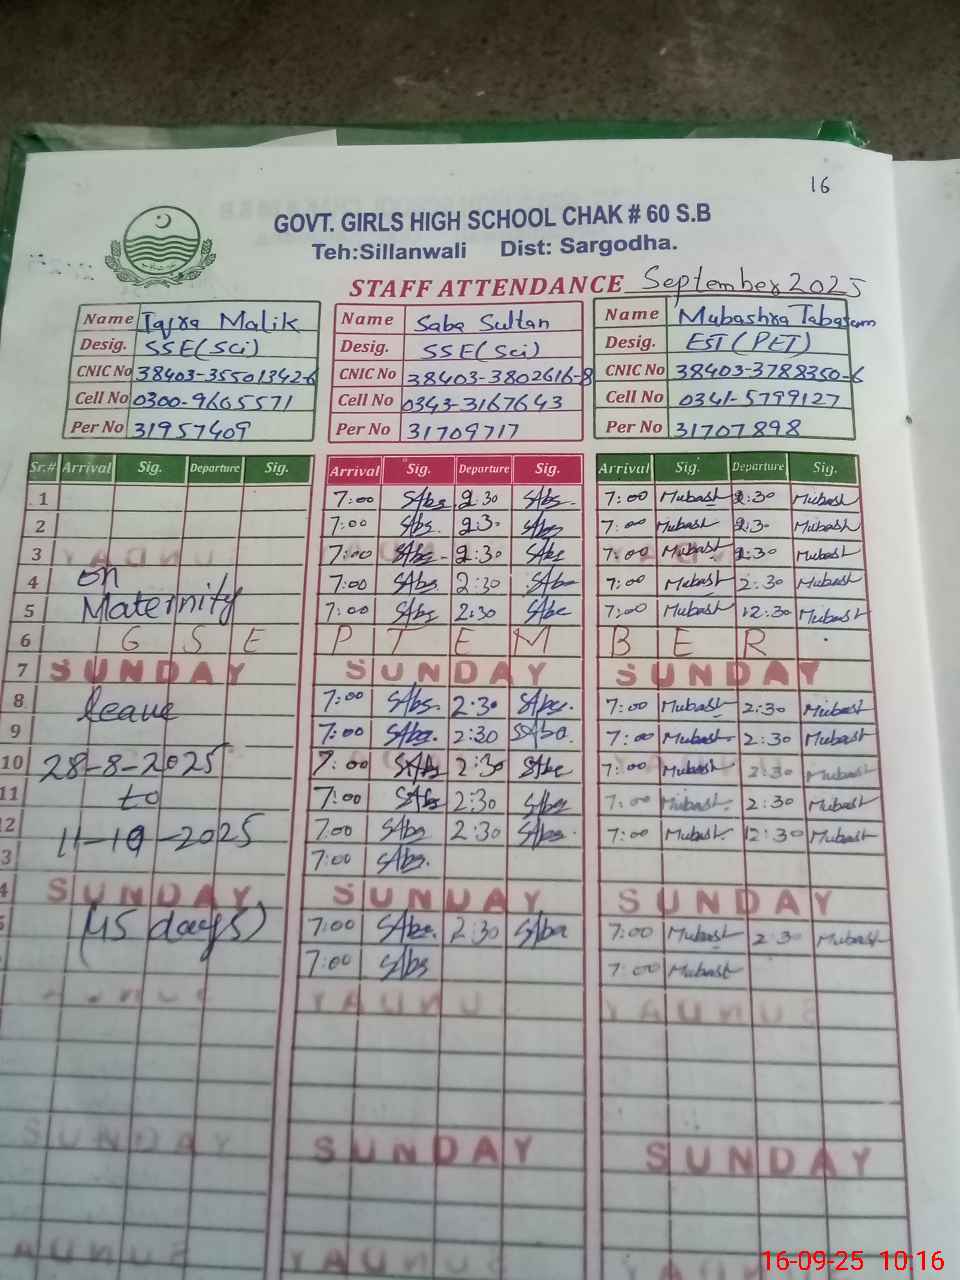 16
GOVT. GIRLS HIGH SCHOOL CHAK # 60 S.B
Teh:Sillanwali Dist: Sargodha.
STAFF ATTENDANCE September 2025
Name Iqra Malik Name Saba Sultan Name Mubashra Tabasum
Desig. SSE(Sci) Desig. SSE(Sci) Desig. EST(PET)
CNIC No 38403-35501342-6 CNIC No 38403-3802616-8 CNIC No 38403-3788350-6
Cell No 0300-9605571 Cell No 0343-3167643 Cell No 0341-5799127
Per No 31957409 Per No 31709717 Per No 31707898
Sr.# Arrival Sig. Departure Sig. Arrival Sig. Departure Sig. Arrival Sig. Departure Sig.
1 7:00 SAbs. 2:30 SAbs. 7:00 Mubash 2:30 Mubash
2 7:00 SAbs. 2:30 SAbs 7:00 Mubash 2:30 Mubash
3 7:00 SAbs 2:30 SAbs 7:00 Mubash 2:30 Mubash
4 on 7:00 SAbs 2:30 SAba 7:00 Mubash 2:30 Mubash
5 Maternity 7:00 SAbs 2:30 SAbe 7:00 Mubash 12:30 Mubash
6 G S E P T E M B E R
7 SUNDAY SUNDAY SUNDAY
8 leave 7:00 SAbs. 2:30 SAbs. 7:00 Mubash 2:30 Mubash
9 7:00 SAba. 2:30 SAba. 7:00 Mubash 2:30 Mubash
10 28-8-2025 7:00 SAbs 2:30 SAbe 7:00 Mubash 2:30 Mubash
11 to 7:00 SAbs 2:30 SAbs 7:00 Mubash 2:30 Mubash
12 11-10-2025 7:00 SAbs 2:30 SAbs. 7:00 Mubash 12:30 Mubash
3 7:00 SAbs.
4 SUNDAY SUNDAY SUNDAY
(45 days) 7:00 SAba. 2:30 SAba 7:00 Mubash 2:30 Mubash
7:00 SAbs 7:00 Mubash
SUNDAY SUNDAY
16-09-25 10:16